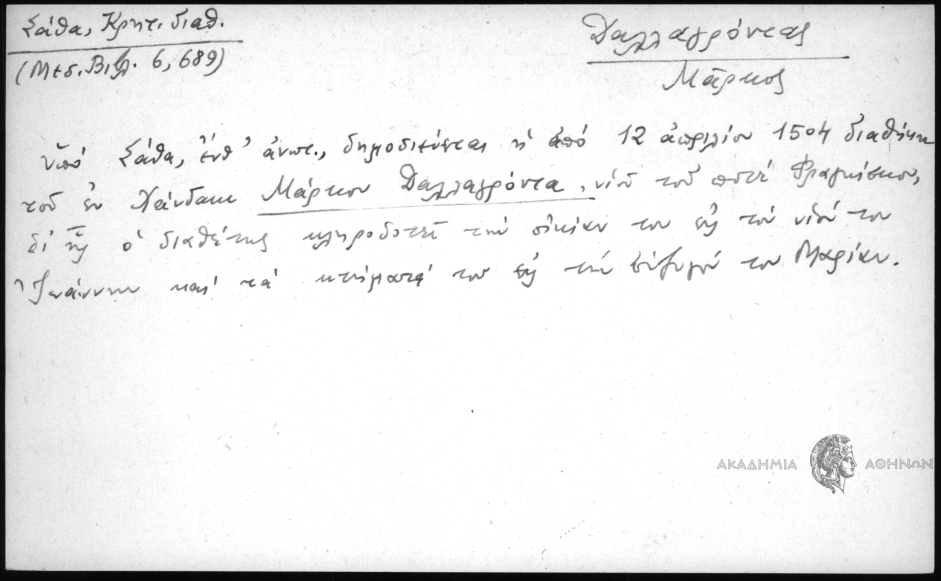 Σάθα, Κρητ. διαθ.
(Μεσ. Βιβλ. 6, 689)
Δαλλαγρόντας
Μάρκος
Ὑπό Σάθα, ἔνθ' ἀνωτ., δημοσιεύεται ἡ ἀπό 12 ἀπριλίου 1504 διαθήκη
τοῦ ἐν Χάνδακι Μάρκου Δαλλαγρόντα, υἱοῦ τοῦ ποτέ Φραγκίσκου,
δι' ἧς ὁ διαθέτης κληροδοτεῖ τήν οἰκίαν του εἰς τόν υἱόν του
Ἰωάννην καί τά κτήματά του εἰς τήν σύζυγό του Μαρίαν.
ΑΚΑΔΗΜΙΑ ΑΘΗΝΩΝ